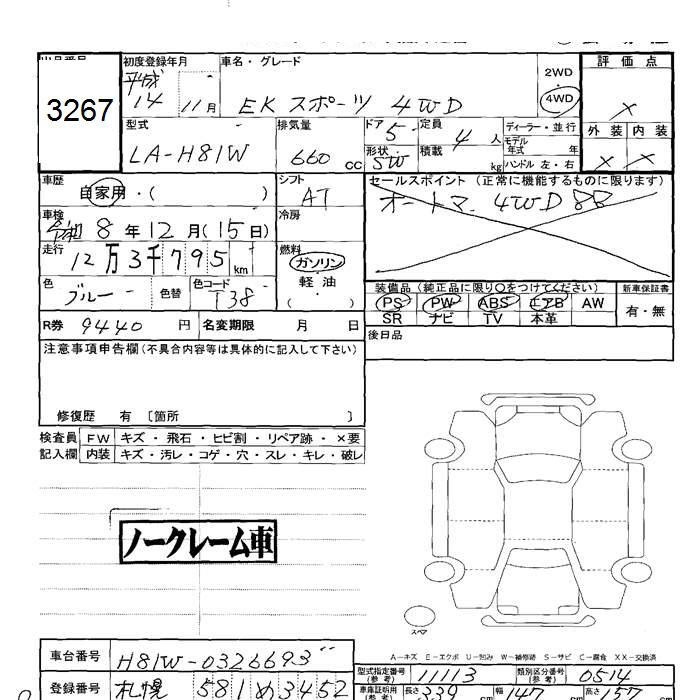 出品番号
3267
初度登録年月
平成
14 11月
車名・グレード
EK スポーツ 4WD
2WD
4WD
評価点
×
外装 内装
× ×
型式
LA-H81W
排気量
660 cc
ドア 5
形状・ SW
定員 4 人
積載 kg
ディーラー・並行
モデル年式 年
ハンドル 左・右
車歴
自家用・( )
シフト
AT
セールスポイント (正常に機能するものに限ります)
オートマ 4WD 88
車検
令和 8年12月(15日)
冷房
走行
12万3千795km
燃料
ガソリン
軽油
( )
色
ブルー
色替
色コード
T38
装備品 (純正品に限り○をつけてください)
PS PW ABS エアB AW
SR ナビ TV 本革
新車保証書
有・無
R券 9440 円 名変期限 月 日
後日品
注意事項申告欄 (不具合内容等は具体的に記入して下さい)
修復歴 有 〔箇所 〕
検査員記入欄
FW キズ・飛石・ヒビ割・リペア跡・×要
内装 キズ・汚レ・コゲ・穴・スレ・キレ・破レ
ノークレーム車
スペア
A-キズ E-エクボ U-凹み W-補修跡 S-サビ C-腐食 XX-交換済
車台番号 H81W-0326693
型式指定番号(参考) 11113 類別区分番号(参考) 0514
登録番号 札幌 581 め 3452
車庫証明用(参考) 長さ 339 cm 幅 147 cm 高さ 157 cm